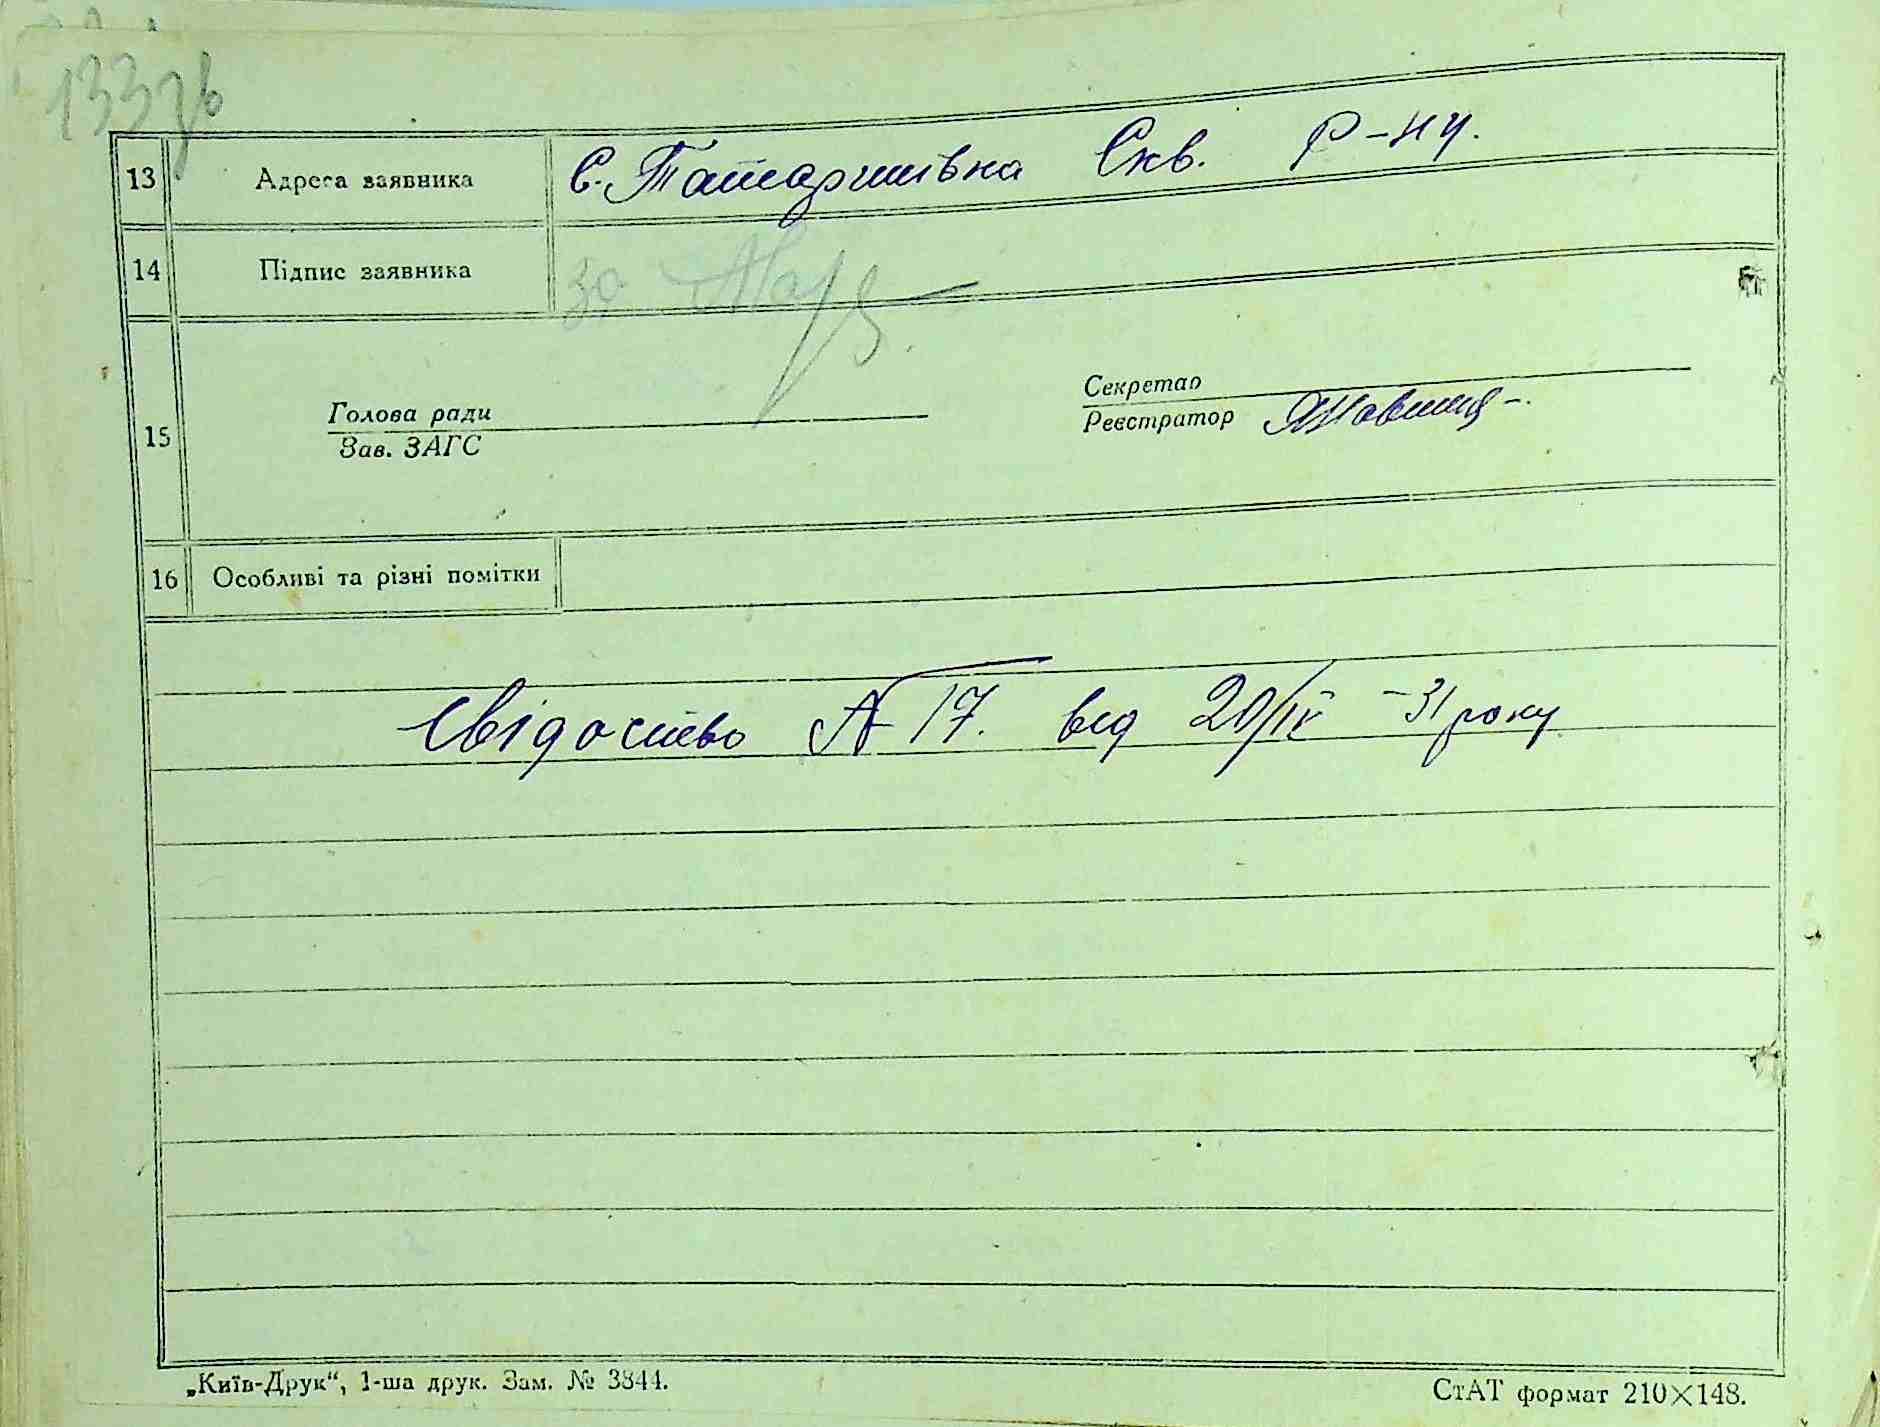 133зв
13 Адреса заявника с. Татаршівка Скв. Р-ну.
14 Підпис заявника за
15 Голова ради
Зав. ЗАГС
Секретар
Реєстратор
16 Особливі та різні помітки
Свідоство А 17. від 20/IX -31 року
„Київ-Друк“, 1-ша друк. Зам. № 3844.
СтАТ формат 210×148.